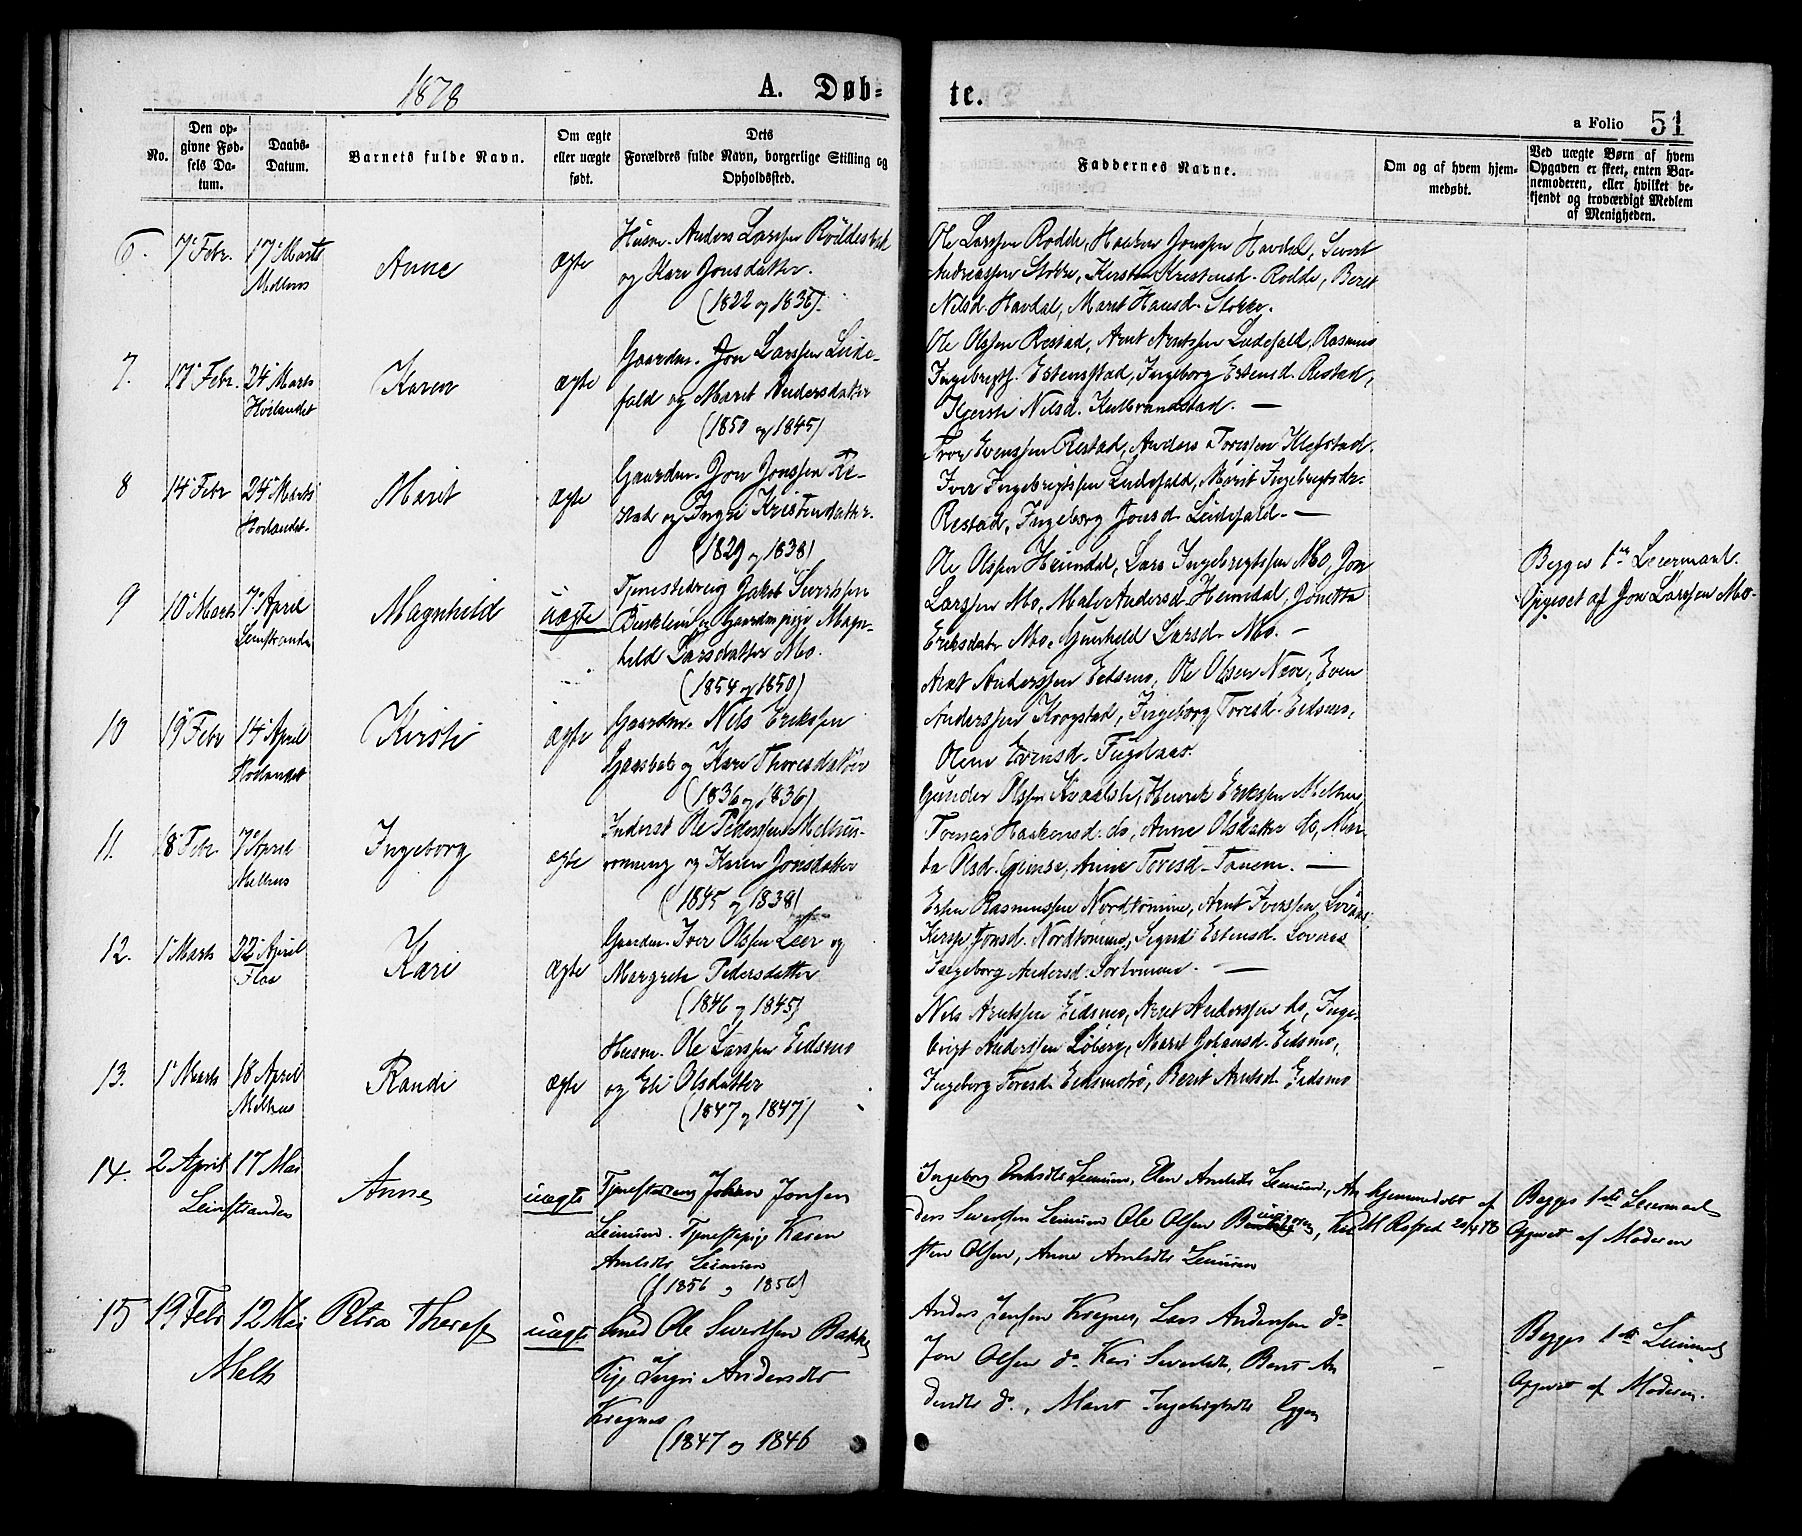 1878
A. Døb-
te.
a Folio 51
No.
Den op-
givne Fød-
sels Da-
tum.
Daabs-
Datum.
Barnets fulde Navn.
Om ægte
eller uægte
født.
Dets
Forældres fulde Navn, borgerlige Stilling og
Opholdssted.
Faddernes Navne.
Om og af hvem hjem-
medøbt.
Ved uægte Børn af hvem
Opgaven er skeet, enten Bar-
nemoderen, eller hvilket be-
kjendt og troværdigt Medlem
af Menigheden.
6. 7' Febr. 17' Marts
Melhus
Anne
ægte
Husm. Anders Larssen
og Kari Jonsdatter.
(1822 og 1836).
Ole Larssen Rodde, Haaken Jonssen Havdal, Sivert
Andreassen Stokke, Kersten Kristensd. Rodde, Berit
Nilsd. Havdal, Marit Hansd. Stokke.
7. 17' Febr. 24' Marts
Høilandet
Karen
ægte
Gaardm. Jon Larssen Lude-
fald og Marit Andersdatter
(1850 og 1845)
Ole Olssen Restad, Arnt Arntssen Ludefald, Rasmus
Ingebregts. Estenstad, Ingeborg Estensd. Restad,
Kjersti Nilsd. Kulbrandstad. —
8 14' Febr 24' Marts
Horlandet.
Marit
ægte
Gaardm. Jon Jonssen Re-
stad og Ingri Kristensdatter.
(1829 og 1838)
Tror Evenssen Restad, Anders Toressen Klefstad.
Iver Ingebrigtssen Ludefald, Marit Ingebrigtsdr.
Restad, Ingeborg Jonsd. Ludefald. —
9 10' Marts 7' April
Leinstranden
Magnhild
uægte
Tjenestedreng Jakob Sivertssen
og Gaardmpige Magn-
hild Larsdatter Mo.
(1854 og 1850)
Ole Olssen Heimdal, Lars Ingebregtssen Mo, Jon
Larssen Mo, Mali Andersd. Heimdal, Jonetta
Eriksdatr Mo, Gunhild Larsd. Mo. —
Begges 1ste Leiermaal.
Opgivet af Jon Larssen Mo.
10 19' Febr 14' April
Horlandet
Kirsti
ægte
Gaardm. Nils Erikssen
Gaasbak og Kari Thoresdatter
(1836 og 1836)
Arnt Anderssen Eidsmo, Ole Olsen Neve, Even
Anderssen Krogstad, Ingeborg Toresd. Eidsmo,
Oline Evensd. Fuglaas.
11. 8' Febr. 7' April
Melhus
Ingeborg
ægte
Inderst Ole Pederssen Melhus-
rønning og Karen Jonsdatter
(1845 og 1838)
Gunder Olssen Kvaalsli, Henrik Erikssen Melhus,
Tomas Haakonsd. do, Anne Olsdatter do, Mar-
ta Olsd. Gimse, Anne Toresd. Tanem. —
12. 1' Marts 22' April
Flaa
Kari
ægte
Gaardm. Iver Olssen Leer og
Margrete Pedersdatter
(1846 og 1845)
Esten Rasmussen Nordtømme, Arnt Iverssen Lovaas,
Jonsd. Nordtømme, Sigrid Estensd. Lovaas
Ingeborg Andersd. —
13. 1' Marts 18 April
Melhus
Randi
ægte
Husm. Ole Larssen Eidsmo
og Eli Olsdatter
(1847 og 1847)
Nils Arntssen Eidsmo, Arnt Anderssen do, Inge-
brigt Anderssen Løberg, Marit Johansd. Eidsmo,
Ingeborg Toresd. Eidsmotrø, Berit Arntsd. Eidsmo
14. 2 April 17 Mai
Leinstranden
Anne
uægte
Tjenestedreng Johan Jonsen
Leinum. Tjenestepige Karen
Arntsdtr Leinum
(f 1856 og 1856)
Ingeborg Leinum, Elen Arntsdtr Leinum, An
ders Sivertsen Leinum Ole Olsen
sten Olsen, Anne Arntsdtr Leinum
hjemmedøbt af
M. Rostad 20/4 78
Begges 1ste Leiermaal
Opgivet af Moderen
15 19 Febr 12 Mai
Melh
Petra Therese
uægte
Smed Ole Sivertsen Bakke
Pige Ingri Andersdtr
Kregnes
(1847 og 1846
Anders Jensen Kregnes, Lars Andersen do.
Jon Olsen do. Kari Sivertsdtr, Berit An
dersdtr do., Marit Ingebrigtsdtr Eggen
Begges 1ste Leiermaal
Opgivet af Moderen.